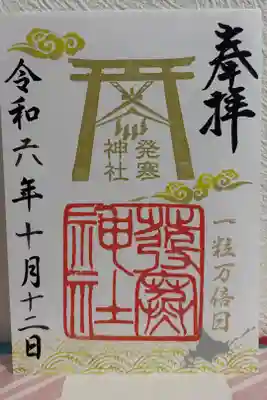 奉拝
発寒
神社
一粒万倍日
発寒
神社
令和六年十月十二日